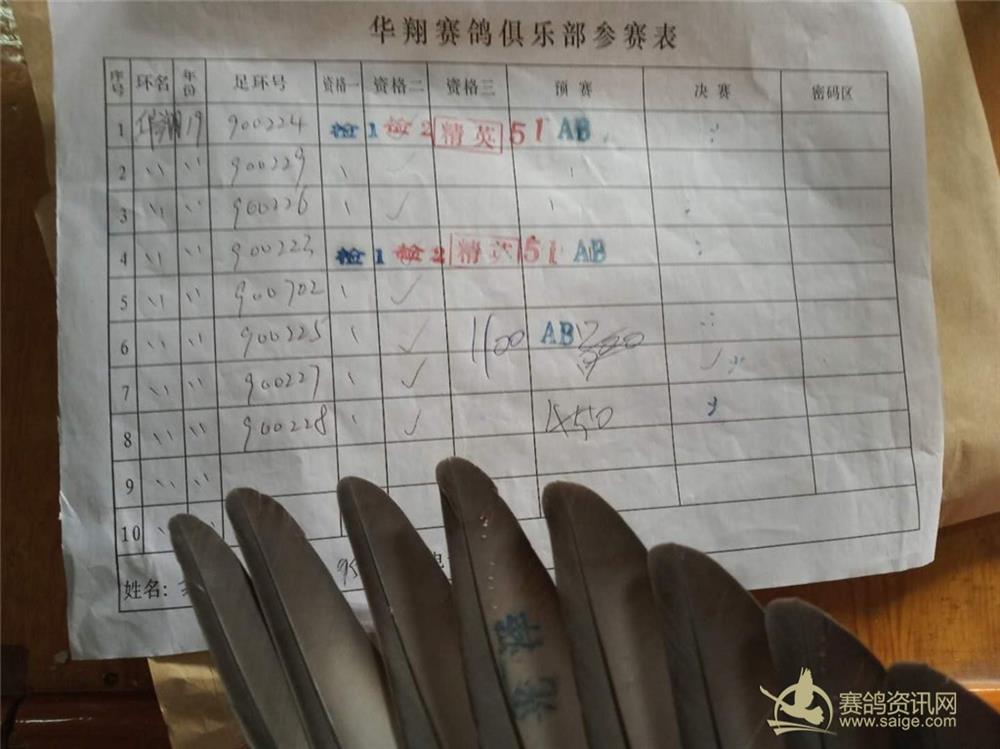 华翔赛鸽俱乐部参赛表
序号 环名 年份 足环号 资格一 资格二 资格三 预赛 决赛 密码区
1 华翔 19 900224 检1 检2 精英 51 AB
2 〃 〃 900229
3 〃 〃 900226 ✓
4 〃 〃 900223 检1 检2 精英 51 AB
5 〃 〃 900702 ✓
6 〃 〃 900225 ✓ 1100 AB
7 〃 〃 900227 ✓ ✓
8 〃 〃 900228 ✓ 1450
9 〃 〃
10
姓名:
赛鸽资讯网
www.saige.com